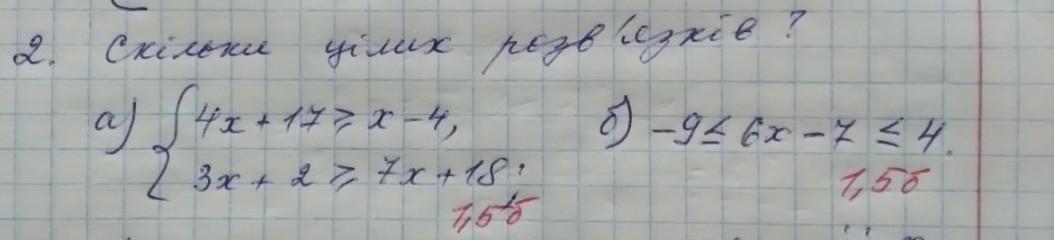 2. Скільки цілих розв'язків?
а) { 4x + 17 ⩾ x - 4,
3x + 2 ⩾ 7x + 18;
1,5б
б) -9 ≤ 6x - 7 ≤ 4.
1,5б